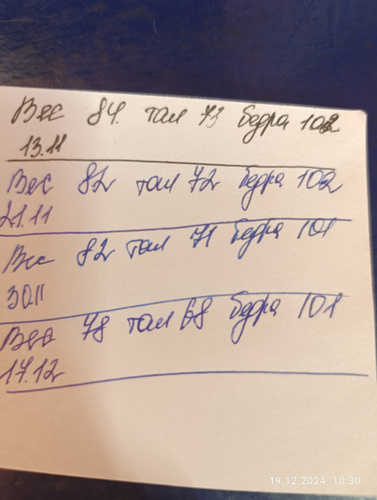 Вес 84. тал 73 бедра 102
13.11
Вес 82 тал 72 бедра 102
21.11
Вес 82 тал 71 бедра 101
30 11
Вес 78 тал 68 бедра 101
17.12
19.12.2024 10:30